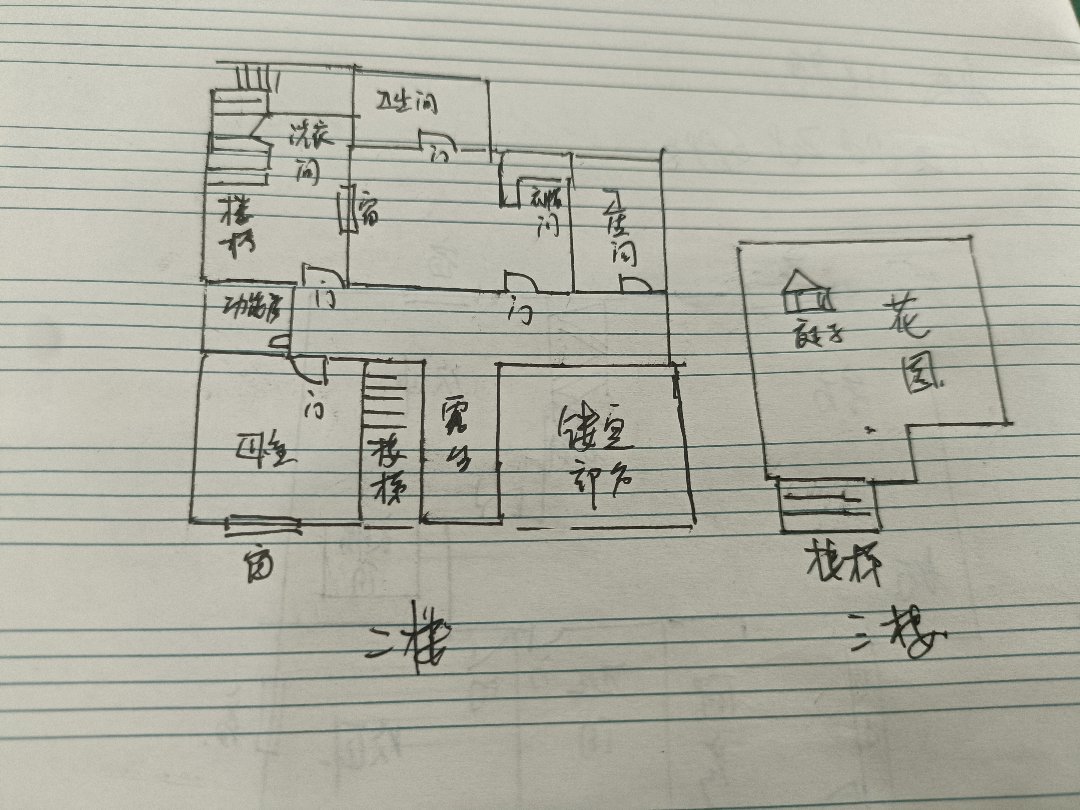 卫生间
门
洗衣
间
楼
梯
窗
衣帽
间
卫
生
间
门
门
功能房
门
卧室
楼
梯
露
台
窗
二楼
亭子
花
园
楼梯
三楼